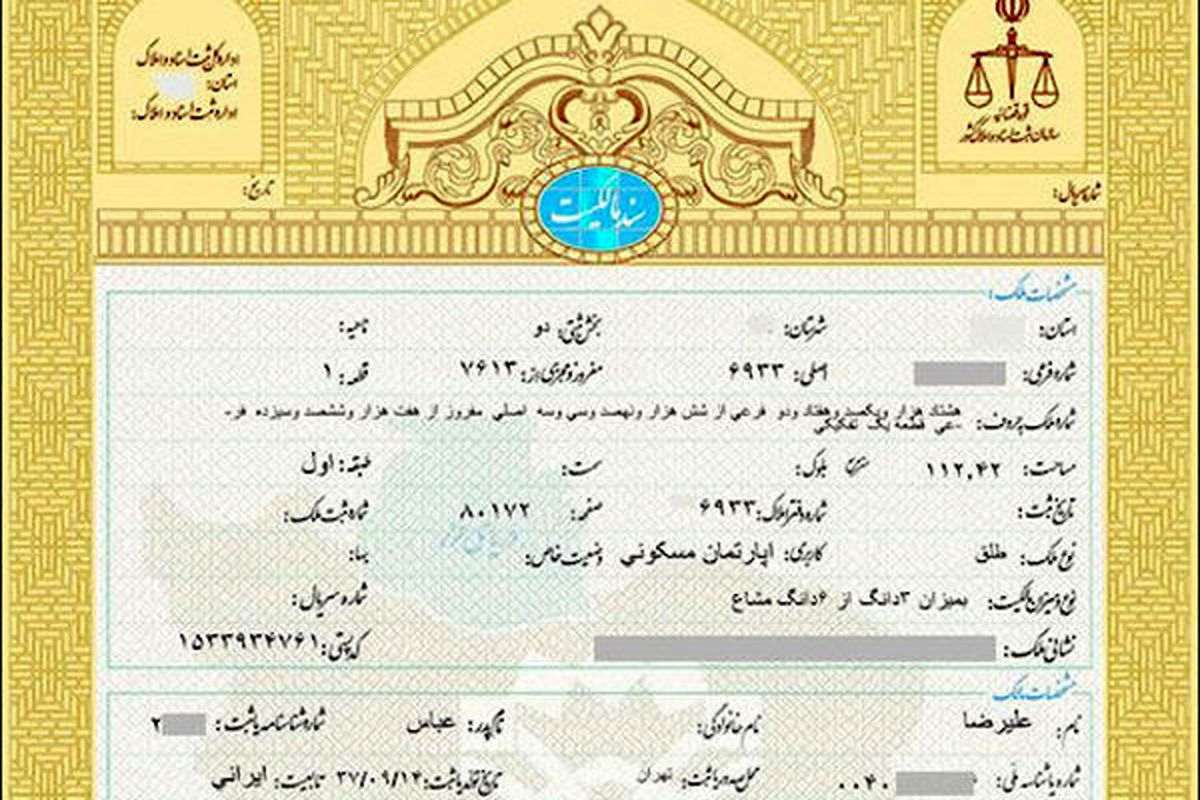 اداره کل ثبت اسناد و املاک
استان:
اداره ثبت اسناد و املاک:
تاریخ:
قوه قضائیه
سازمان ثبت اسناد و املاک کشور
شماره سریال:
سند مالکیت
مشخصات ملک:
استان: شهرستان: بخش ثبتی: دو ناحیه:
شماره فرعی: اصلی: ۶۹۳۳ مفروز و مجزی از: ۷۶۱۳ قطعه: ۱
شماره ملک بحروف: هشتاد هزار ویکصد وهفتاد ودو فرعي از شش هزار ونهصد وسي وسه اصلي مفروز از هفت هزار وششصد وسيزده فر-
-عي قطعه يک تفکيکي
مساحت: ۱۱۲,۴۲ مترمربع بلوک: سمت: طبقه: اول
تاریخ ثبت: شماره دفتر املاک: ۶۹۳۳ صفحه: ۸۰۱۷۲ شماره ثبت ملک:
نوع ملک: طلق کاربری: اپارتمان مسکوني وضعیت خاص: بهاء:
نوع و میزان مالکیت: بميزان ۳دانگ از ۶دانگ مشاع شماره سریال:
نشانی ملک: کد پستی: ۱۵۳۳۹۳۴۷۶۱
مشخصات مالک:
نام: عليرضا نام خانوادگی: نام پدر: عباس شماره شناسنامه یا ثبت: ۲
شماره یا شناسه ملی: ۰۰۴۰ محل صدور یا ثبت: تهران تاریخ تولد یا ثبت: ۳۷/۰۹/۱۴ تابعیت: ايراني